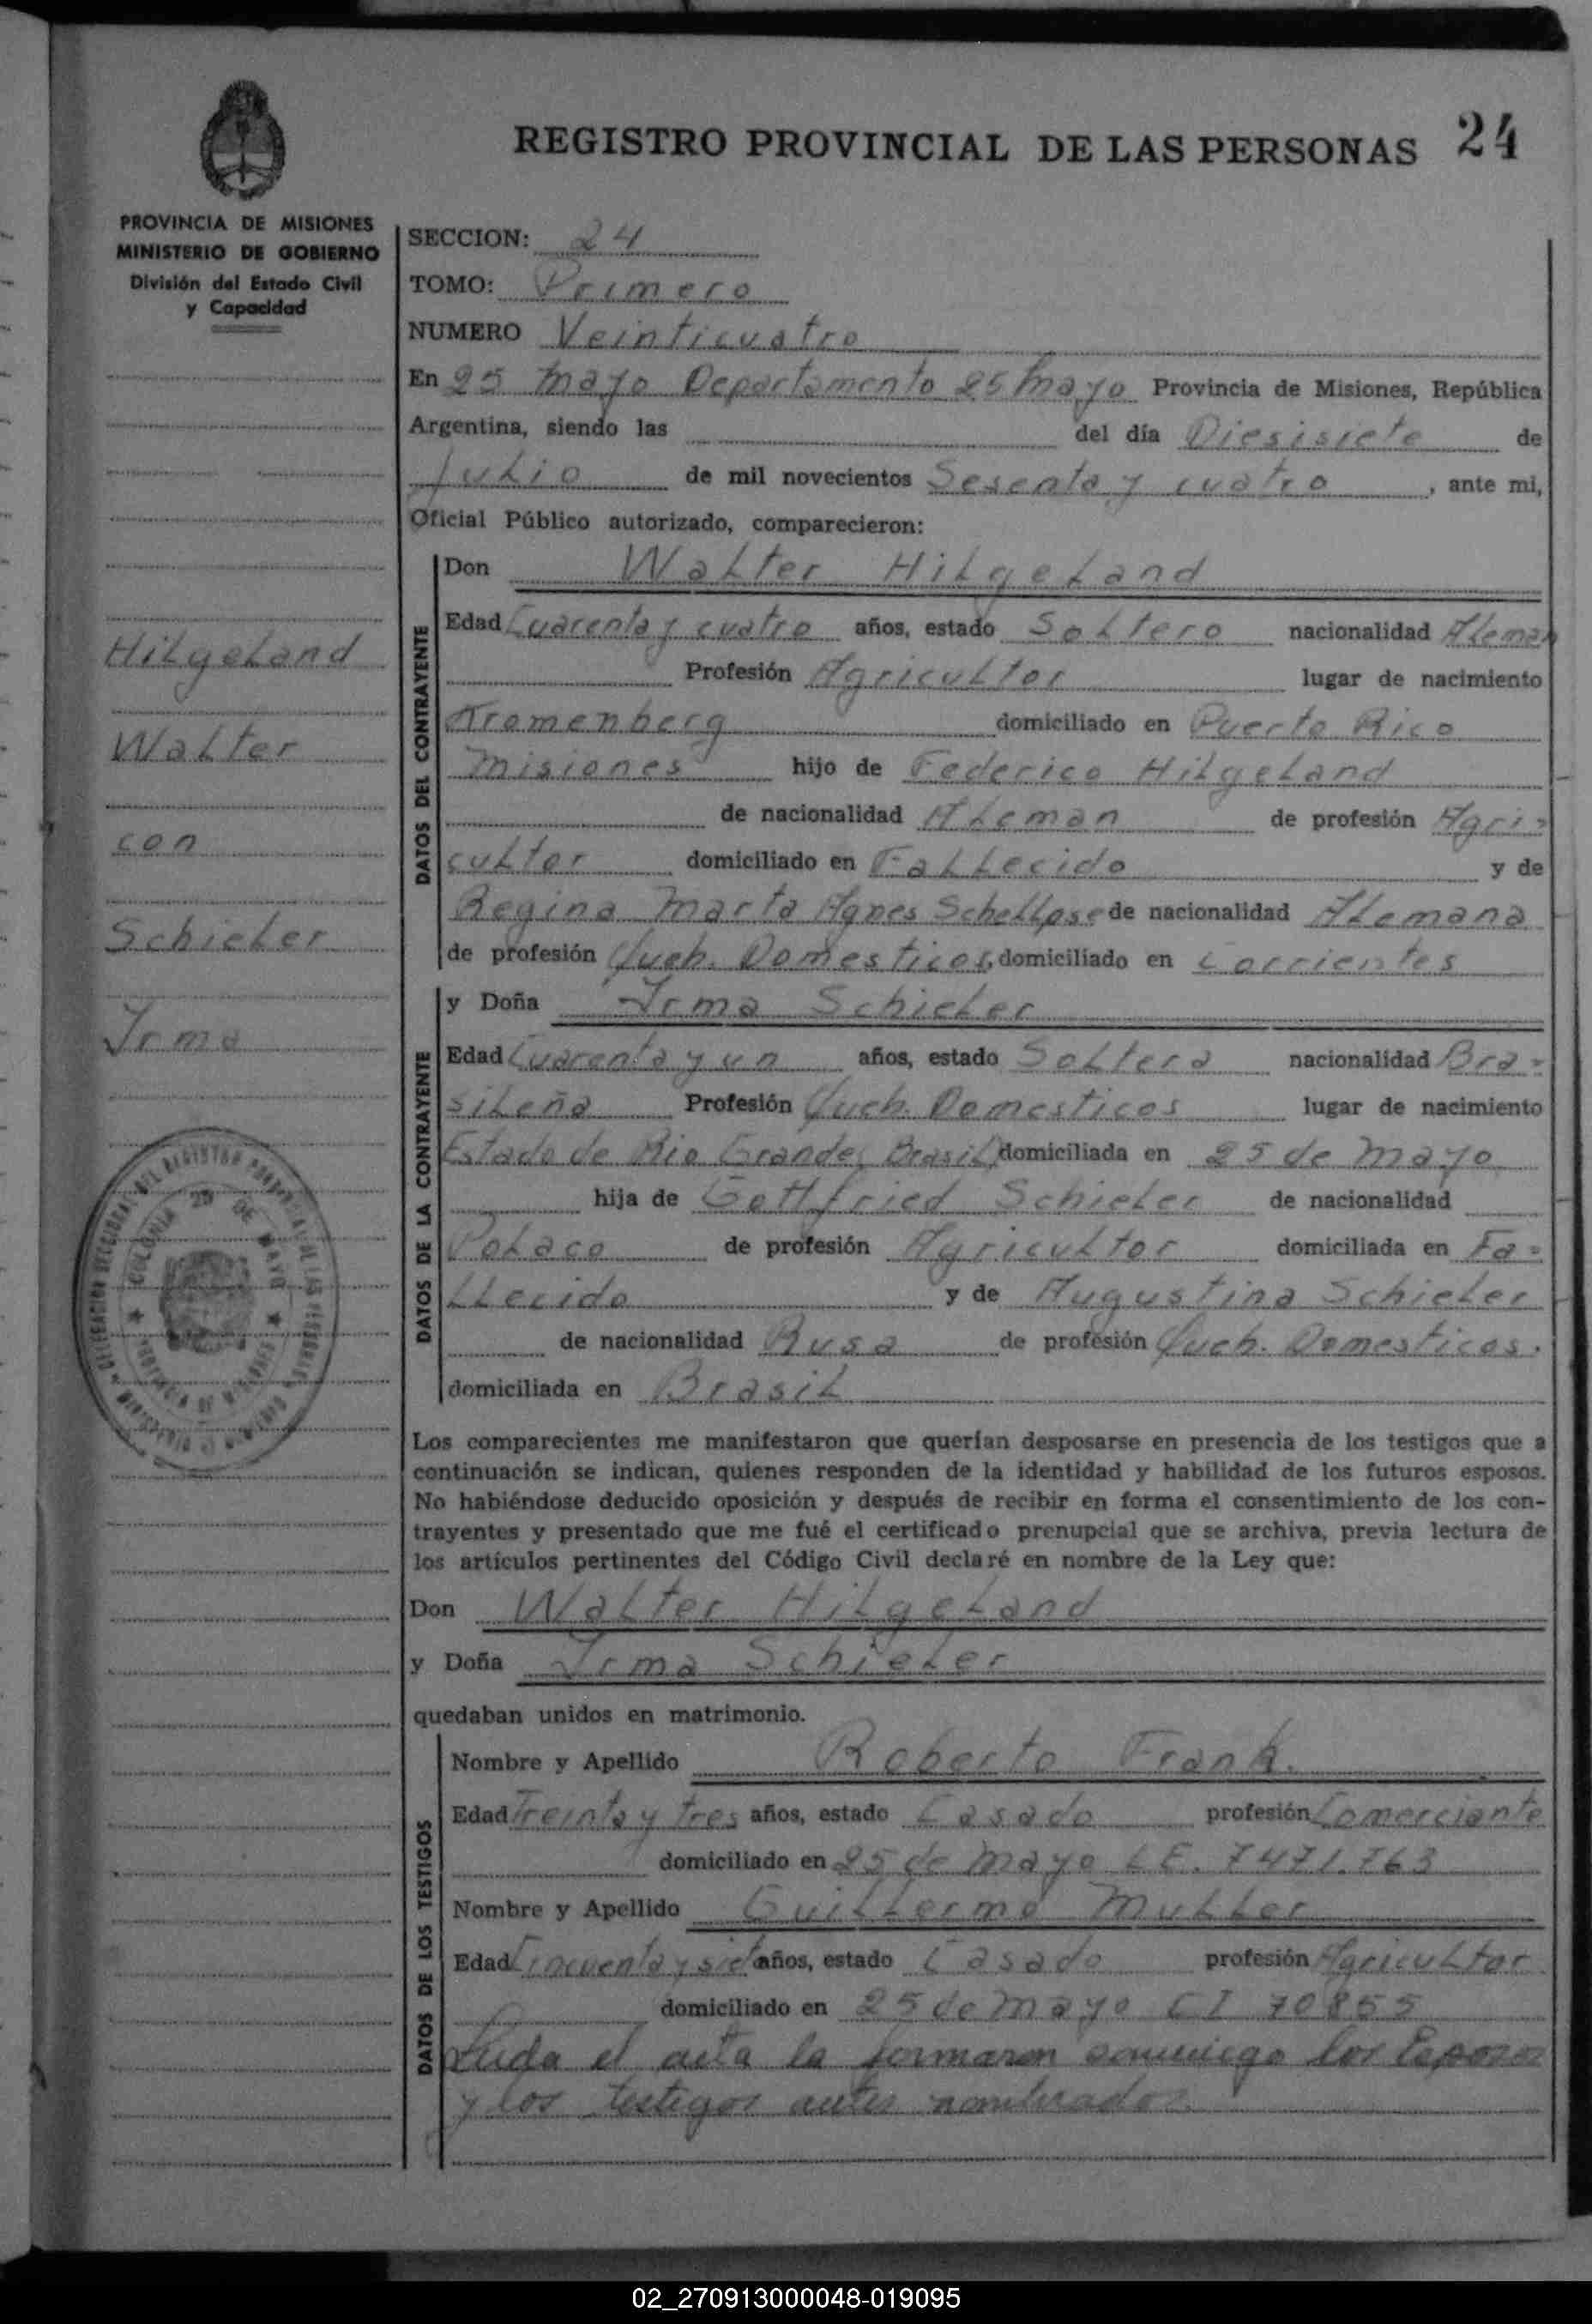 REGISTRO PROVINCIAL DE LAS PERSONAS 24
PROVINCIA DE MISIONES
MINISTERIO DE GOBIERNO
División del Estado Civil
y Capacidad
SECCION: 24
TOMO: Primero
NUMERO Veinticuatro
En 25 Mayo Departamento 25 Mayo Provincia de Misiones, República
Argentina, siendo las del día Diesisiete de
Julio de mil novecientos Sesenta y cuatro, ante mi,
Oficial Público autorizado, comparecieron:
DATOS DEL CONTRAYENTE
Don Walter Hilgeland
Edad Cuarenta y cuatro años, estado Soltero nacionalidad Aleman
Profesión Agricultor lugar de nacimiento
Kromenberg domiciliado en Puerto Rico
Misiones hijo de Federico Hilgeland
de nacionalidad Aleman de profesión Agri-
cultor domiciliado en Fallecido y de
Regina Marta Agnes Schellose de nacionalidad Alemana
de profesión Queh. Domesticos, domiciliado en Corrientes
DATOS DE LA CONTRAYENTE
y Doña Irma Schieler
Edad Cuarenta y un años, estado Soltera nacionalidad Bra-
sileña Profesión Queh. Domesticos lugar de nacimiento
Estado de Rio Grande, Brasil, domiciliada en 25 de Mayo
hija de Gottfried Schieler de nacionalidad
Polaco de profesión Agricultor domiciliada en Fa-
llecido y de Augustina Schieler
de nacionalidad Rusa de profesión Queh. Domesticos.
domiciliada en Brasil
Hilgeland
Walter
con
Schieler
Irma
COLONIA 25 DE MAYO
PROVINCIA DE MISIONES
Los comparecientes me manifestaron que querían desposarse en presencia de los testigos que a
continuación se indican, quienes responden de la identidad y habilidad de los futuros esposos.
No habiéndose deducido oposición y después de recibir en forma el consentimiento de los con-
trayentes y presentado que me fué el certificado prenupcial que se archiva, previa lectura de
los artículos pertinentes del Código Civil declaré en nombre de la Ley que:
Don Walter Hilgeland
y Doña Irma Schieler
quedaban unidos en matrimonio.
DATOS DE LOS TESTIGOS
Nombre y Apellido Roberto Frank.
Edad Treinta y tres años, estado Casado profesión Comerciante
domiciliado en 25 de Mayo L E. 7471.763
Nombre y Apellido Guillermo Muller
Edad Cincuenta y siete años, estado Casado profesión Agricultor
domiciliado en 25 de Mayo C I 70855
Leida el acta la firmaron conmigo los Esposos
y los testigos antes nombrados.
02_270913000048-019095